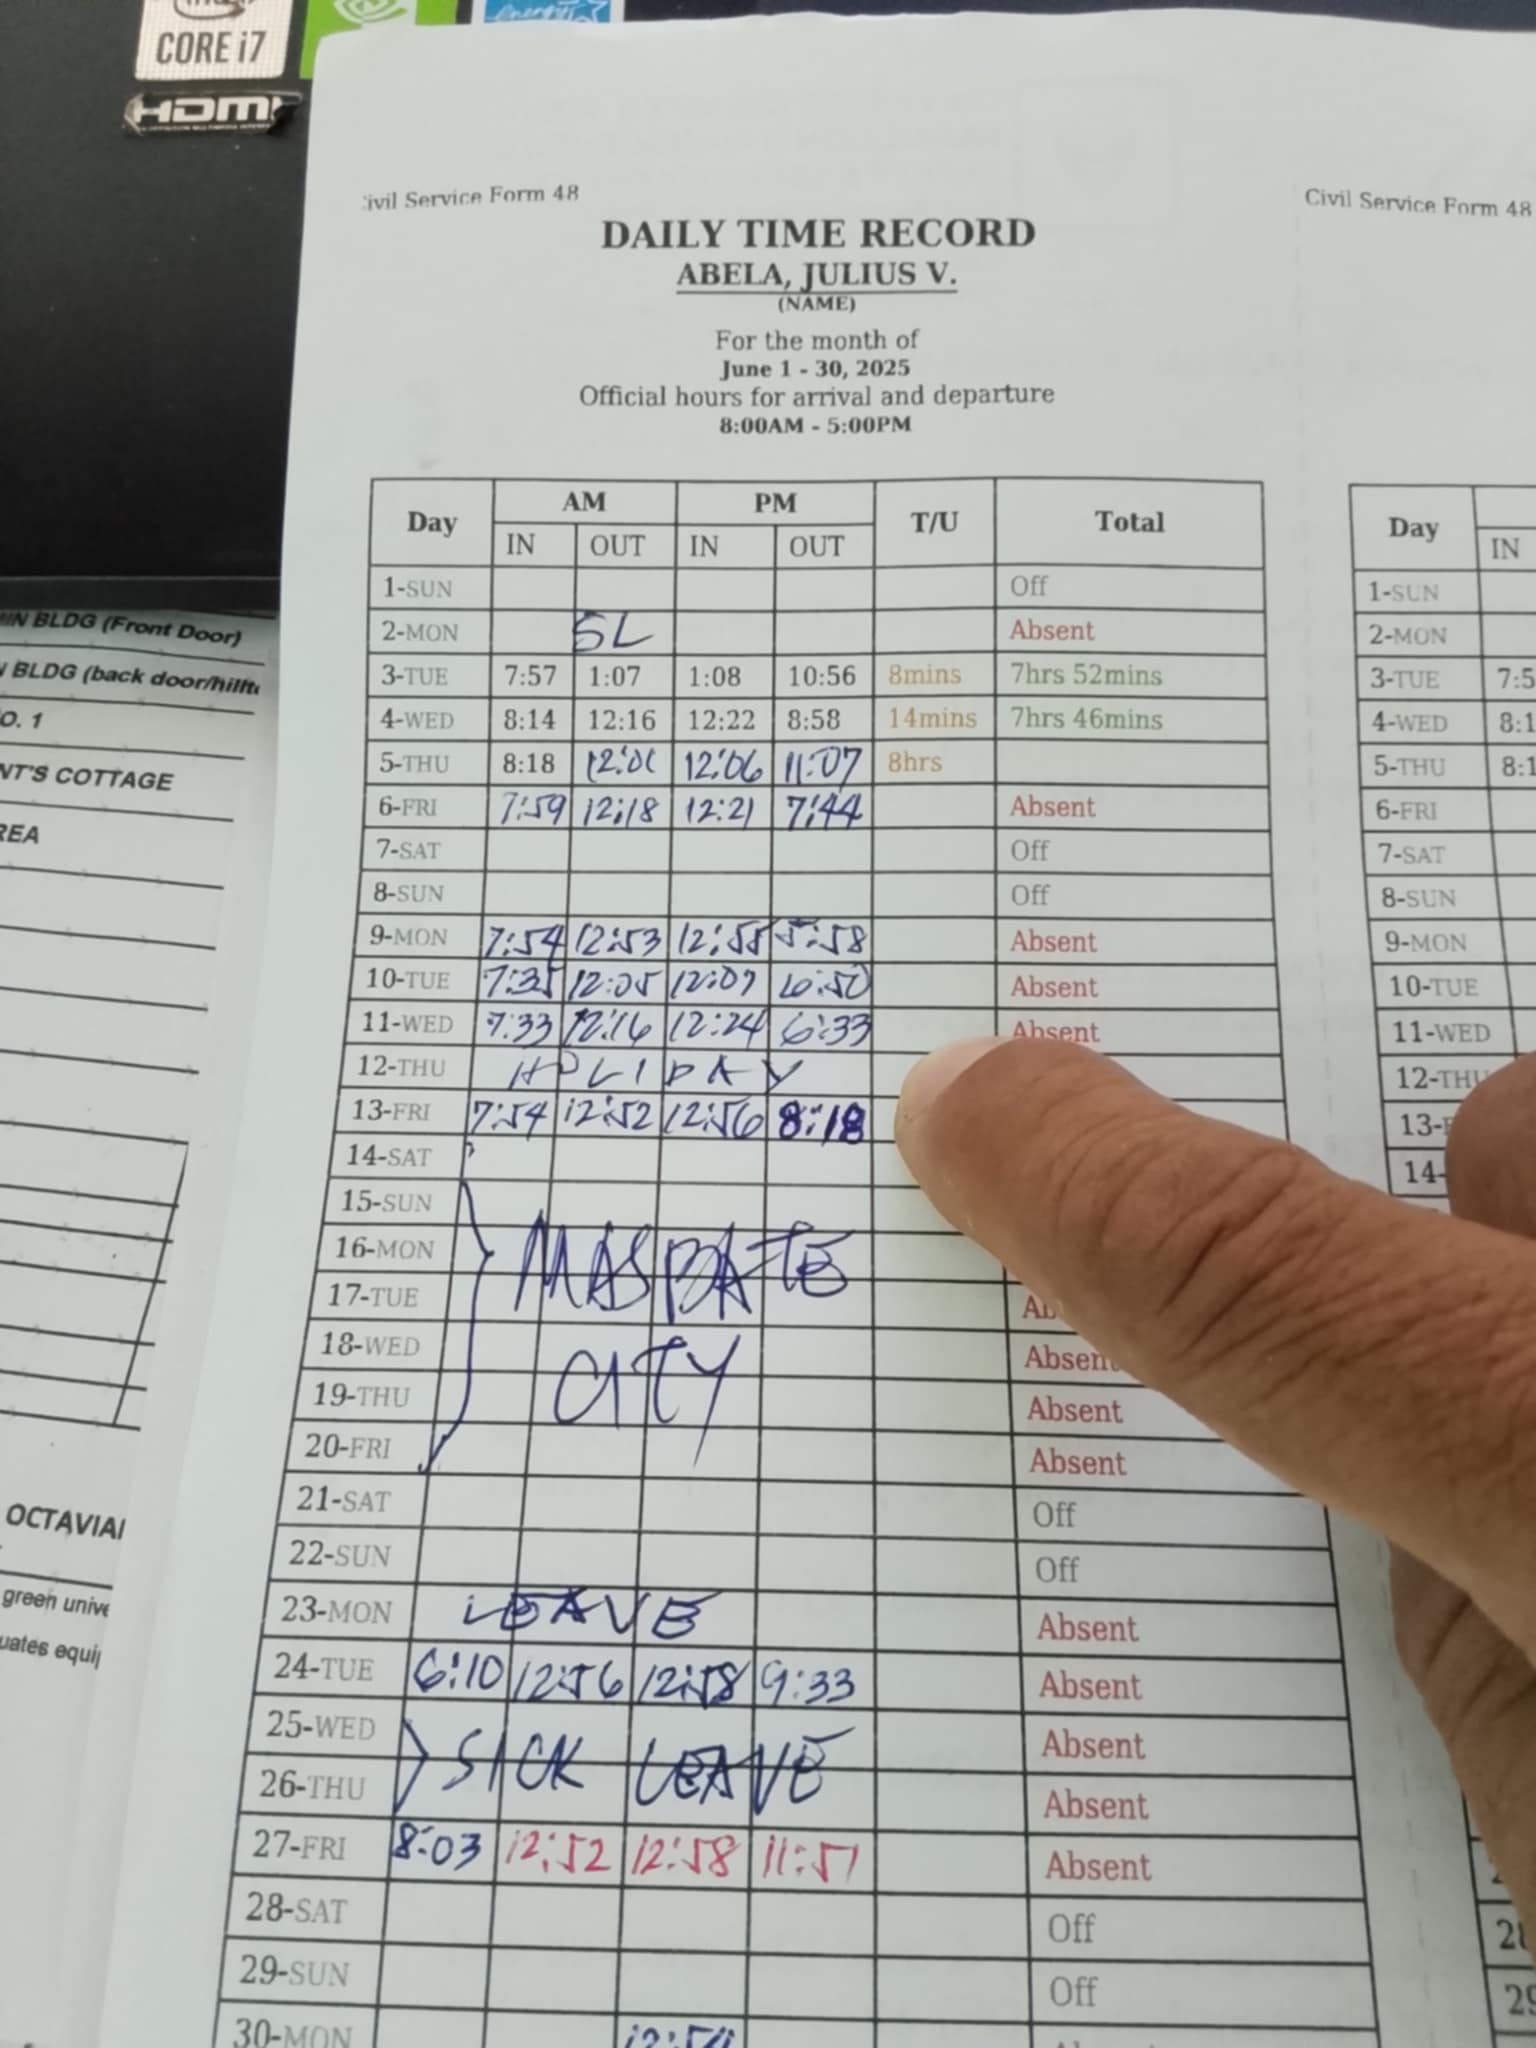 CORE i7
HDMI
MIN BLDG (Front Door)
BLDG (back door/hillt
O. 1
NT'S COTTAGE
REA
OCTAVIA
green unive
uates equip
ivil Service Form 48
Civil Service Form 48
DAILY TIME RECORD
ABELA, JULIUS V.
(NAME)
For the month of
June 1 - 30, 2025
Official hours for arrival and departure
8:00AM - 5:00PM
Day AM PM T/U Total
IN OUT IN OUT
1-SUN Off
2-MON SL Absent
3-TUE 7:57 1:07 1:08 10:56 8mins 7hrs 52mins
4-WED 8:14 12:16 12:22 8:58 14mins 7hrs 46mins
5-THU 8:18 12:01 12:06 11:07 8hrs
6-FRI 7:59 12:18 12:21 7:44 Absent
7-SAT Off
8-SUN Off
9-MON 7:54 12:53 12:55 5:58 Absent
10-TUE 7:35 12:05 12:07 6:50 Absent
11-WED 7:33 12:16 12:24 6:33 Absent
12-THU HOLIDAY
13-FRI 7:54 12:52 12:56 8:18
14-SAT
15-SUN
16-MON MASBATE
17-TUE Ab
18-WED CITY Absent
19-THU Absent
20-FRI Absent
21-SAT Off
22-SUN Off
23-MON LEAVE Absent
24-TUE 6:10 12:56 12:58 9:33 Absent
25-WED SICK LEAVE Absent
26-THU Absent
27-FRI 8:03 12:52 12:58 11:51 Absent
28-SAT Off
29-SUN Off
30-MON
Day
IN
1-SUN
2-MON
3-TUE 7:5
4-WED 8:1
5-THU 8:1
6-FRI
7-SAT
8-SUN
9-MON
10-TUE
11-WED
12-THU
13-
14-